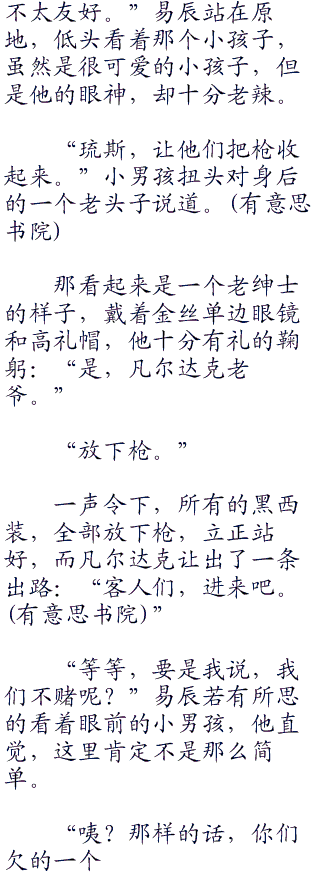 不太友好。”易辰站在原
地，低头看着那个小孩子，
虽然是很可爱的小孩子，但
是他的眼神，却十分老辣。
“琉斯，让他们把枪收
起来。”小男孩扭头对身后
的一个老头子说道。(有意思
书院)
那看起来是一个老绅士
的样子，戴着金丝单边眼镜
和高礼帽，他十分有礼的鞠
躬：“是，凡尔达克老
爷。”
“放下枪。”
一声令下，所有的黑西
装，全部放下枪，立正站
好，而凡尔达克让出了一条
出路：“客人们，进来吧。
(有意思书院)”
“等等，要是我说，我
们不赌呢？”易辰若有所思
的看着眼前的小男孩，他直
觉，这里肯定不是那么简
单。
“咦？那样的话，你们
欠的一个